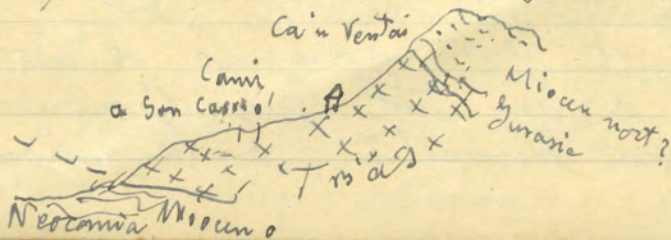 Ca'n Ventai
Cami
a Son Carrió
A
Miocen nort?
Jurasic
Trias
Neocomia Mioceno